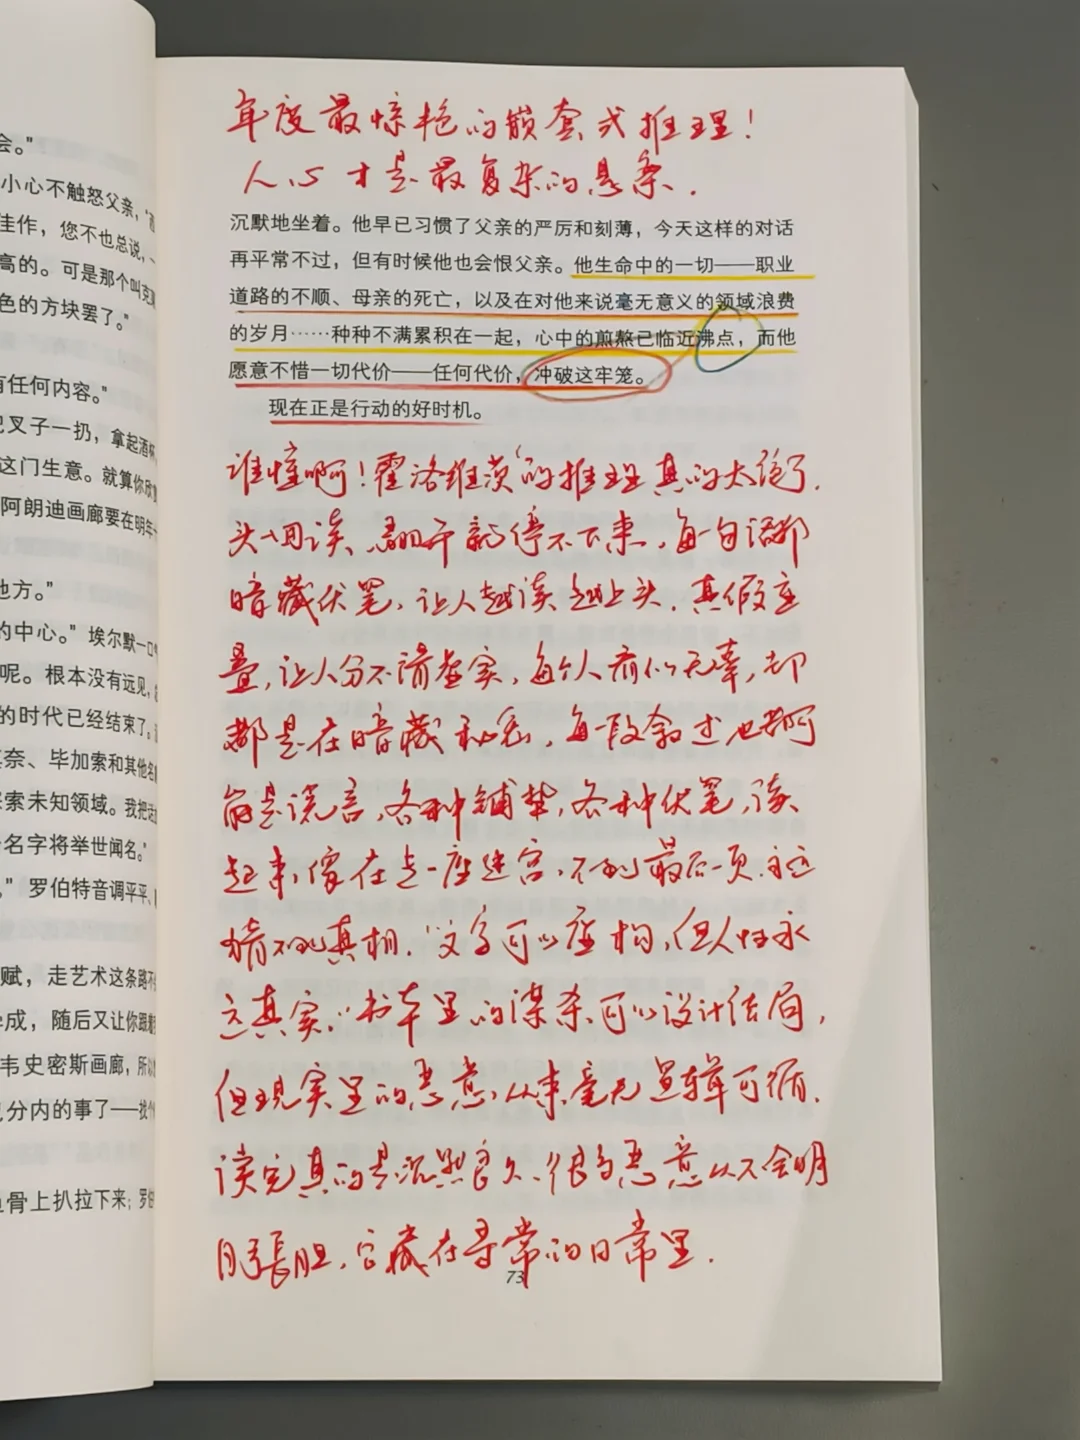 会。"
小心不触怒父亲,"
佳作，您不也总说，一
高的。可是那个叫克
色的方块罢了。"
有任何内容。"
叉子一扔，拿起酒杯
这门生意。就算你欣
阿朗迪画廊要在明年
地方。"
的中心。"埃尔默一口
呢。根本没有远见，
的时代已经结束了。
奈、毕加索和其他名
索未知领域。我把达
名字将举世闻名。"
"罗伯特音调平平、
赋，走艺术这条路不
学成，随后又让你跟
韦史密斯画廊，所以
分内的事了——找个
鱼骨上扒拉下来；罗伯
年度最惊艳的嵌套式推理！
人心才是最复杂的悬案.
沉默地坐着。他早已习惯了父亲的严厉和刻薄，今天这样的对话
再平常不过，但有时候他也会恨父亲。他生命中的一切——职业
道路的不顺、母亲的死亡，以及在对他来说毫无意义的领域浪费
的岁月……种种不满累积在一起，心中的煎熬已临近沸点，而他
愿意不惜一切代价——任何代价，冲破这牢笼。
现在正是行动的好时机。
谁懂啊！霍洛维茨的推理真的太绝了.
头一回读、翻开就停不下来，每一句话都
暗藏伏笔，让人越读越上头，真假重
叠，让人分不清虚实，每个人看似无辜，却
都是在暗藏秘密，每一段叙述也都可
能是谎言，各种铺垫，各种伏笔，读
起来像在走一座迷宫，不到最后一页永远
猜不到真相.“文字可以虚构，但人性永
远真实.”书本里的谋杀可以设计结局，
但现实里的恶意，从来毫无逻辑可循.
读完真的是沉默良久、很多恶意从不会明
目张胆，它藏在寻常的日常里.
73